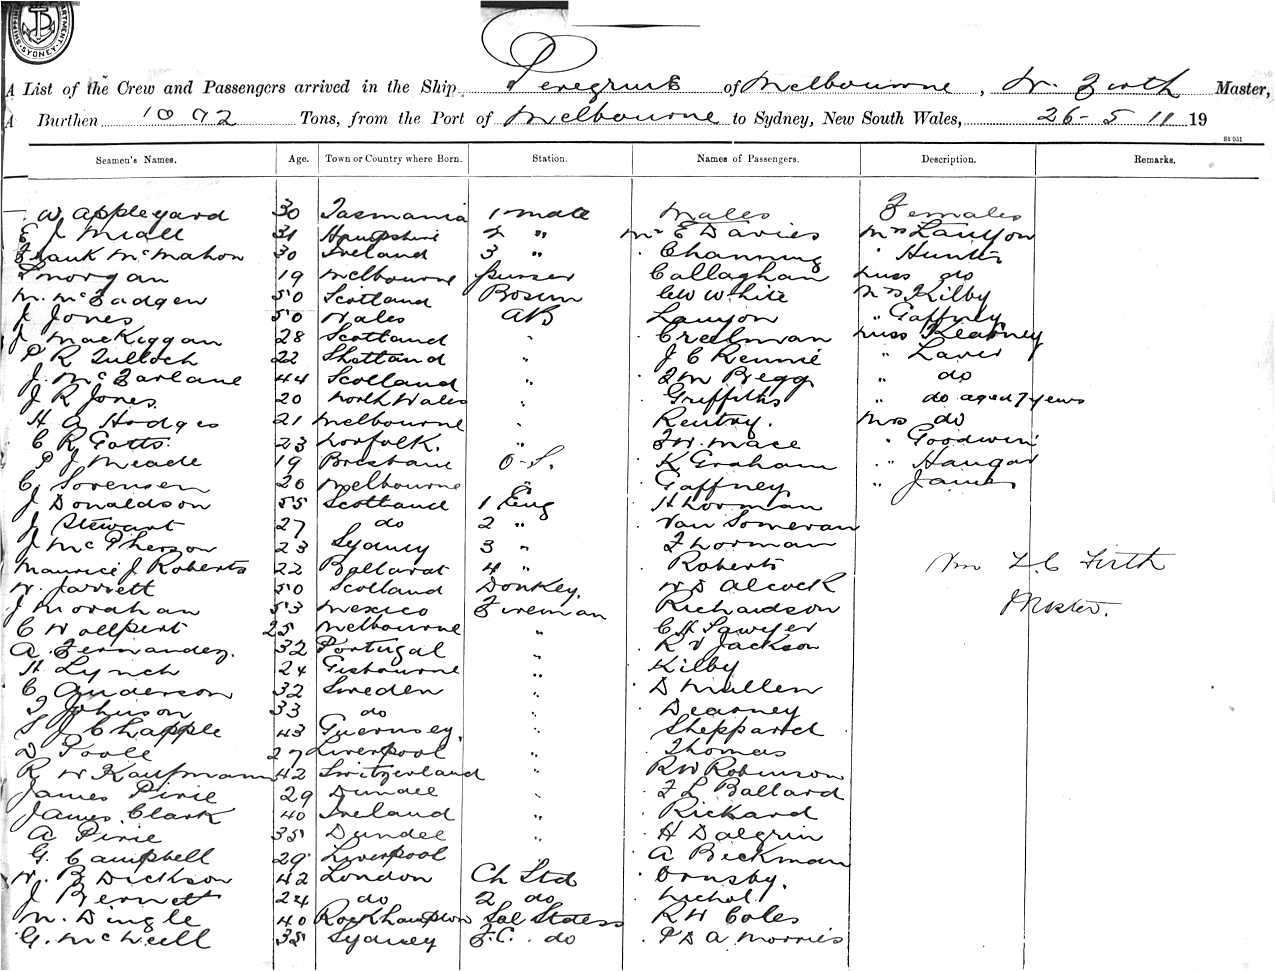 DEPARTMENT. SYDNEY. SHIPPING
A List of the Crew and Passengers arrived in the Ship Peregrine of Melbourne, W. Firth Master,
A Burthen 1092 Tons, from the Port of Melbourne to Sydney, New South Wales, 26-5 11 19
Seamen's Names. Age. Town or Country where Born. Station. Names of Passengers. Description. Remarks.
W Appleyard 30 Tasmania 1 mate Males Females
E J Miall 31 Hampshire 2 " Mr E Davies Mrs Lanyon
Frank McMahon 30 Ireland 3 " Channing " Hunter
Morgan 19 Melbourne Purser Callaghan Miss do
M. McFadgen 50 Scotland Bosun White Mrs Kilby
J Jones 50 Wales AB Lanyon " Gaffney
J MacKiggan 28 Scotland " Creelman Miss Kearney
P R Tulloch 22 Shetland " J C Rennie " Laver
J. McFarlane 44 Scotland " Begg " do
J R Jones 20 North Wales " Griffiths " do aged 7 years
H A Hodges 21 Melbourne " Mrs do
C R Gotts 23 Norfolk. " Mace " Goodwin
P J Meade 19 Brisbane O.S. K Graham "
C Sorensen 20 Melbourne " Gaffney " James
J Donaldson 55 Scotland 1 Eng H Lorman
J Stewart 27 do 2 " Van Someran
J McPherson 23 Sydney 3 " F Lorman
Maurice J Roberts 22 Ballarat 4 " Roberts Wm F. C Firth
W. Jarrett 50 Scotland Donkey. W D Alcock
J Morahan 53 Mexico Fireman Richardson Master.
C Wallpert 25 Melbourne " C H Sawyer
A. Fernandez. 32 Portugal " R V Jackson
H Lynch 24 Gisbourne " Kilby
C Anderson 32 Sweden " D Mullen
J Johnson 33 do " Dearney
S J Chapple 43 Guernsey. " Sheppard
D Poole 27 Liverpool " Thomas
R W Kaufmann 42 Switzerland " R W Robinson
James Pirie 29 Dundee " F L Ballard
James Clark 40 Ireland " Rickard
A Pirie 35 Dundee " H Dalgrin
G. Campbell 29 Liverpool A Beckman
W. B Dickson 42 London Ch Std Ornsby.
J Bennett 24 do 2 do Nichol
M. Dingle 40 Rockhampton Sal Stdess R W Coles
G. McNeill 35 Sydney F.C. do P D A Morris